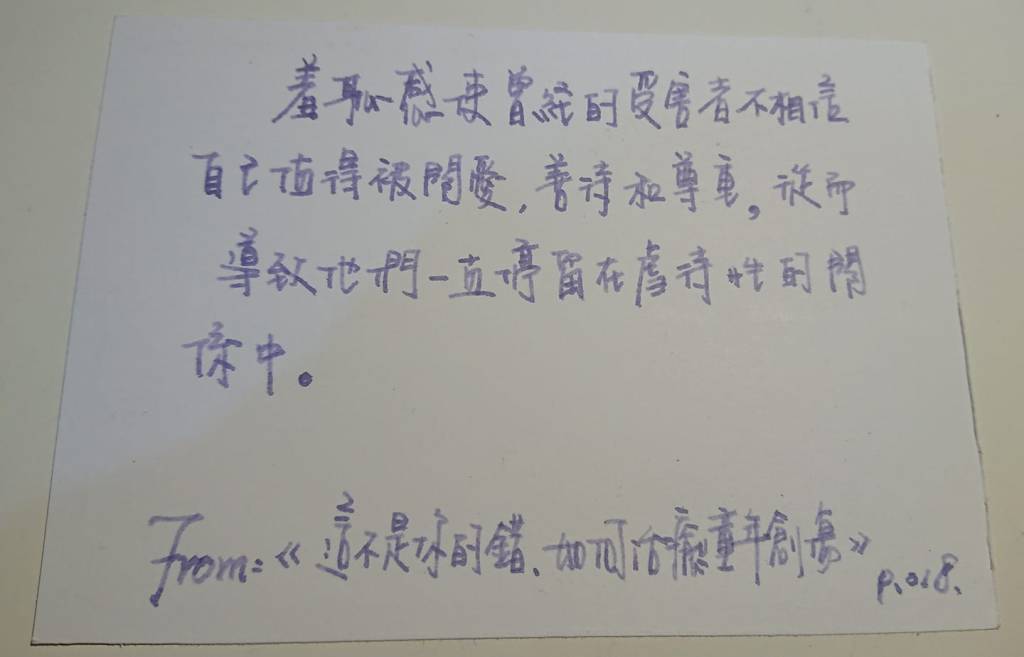 羞恥感使曾經的受害者不相信
自己值得被關愛,善待和尊重,從而
導致他們一直停留在虐待性的關
係中。
From:《這不是你的錯、如何治癒童年創傷》
p.018.